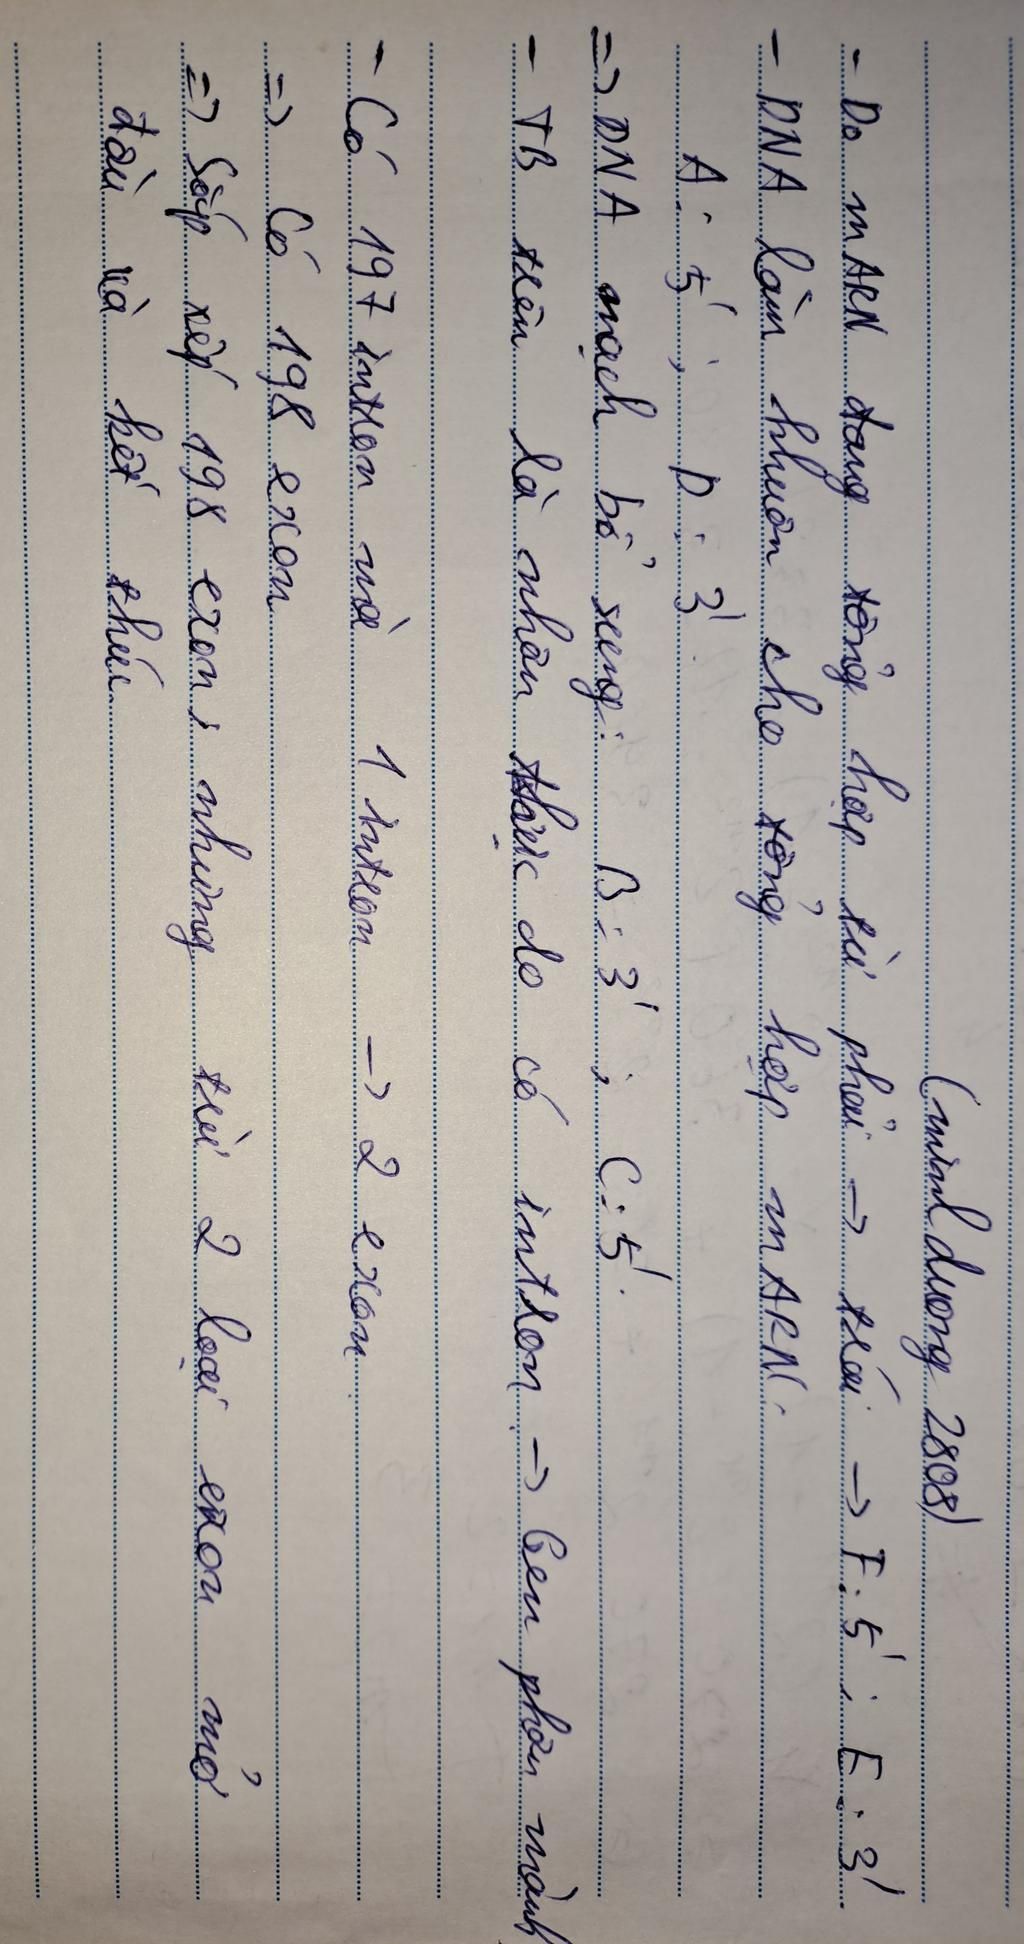 (minhduong 2808)
- Do mARN đang tổng hợp từ phải → trái → F: 5' ; E: 3'
- DNA làm khuôn cho tổng hợp mARN.
A: 5' ; D: 3'.
=> DNA mạch bổ sung: B: 3' ; C: 5'.
- TB trên là nhân thực do có intron → Gen phân mảnh
- Có 197 intron mà 1 intron → 2 exon.
=> Có 198 exon
=> Sắp xếp 198 exon, nhưng trừ 2 loại exon mở
đầu và kết thúc